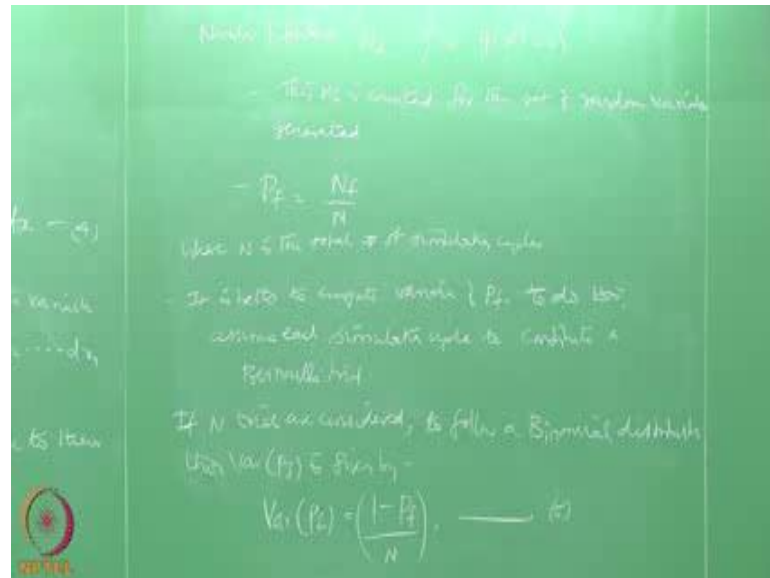 Nf
- This Nf is counted for the set of random variable
generated
- Pf = Nf / N
dx - (4)
where N is the total # of simulation cycles
- It is better to compute variance of Pf. To do this,
variable
assume each simulation cycle to constitute a
.... dxn
Bernoulli trial
If N trials are considered, to follow a Binomial distribution
to
then Var(Pf) is given by -
Var(Pf) = (1 - Pf / N), ——— (5)
NPTEL